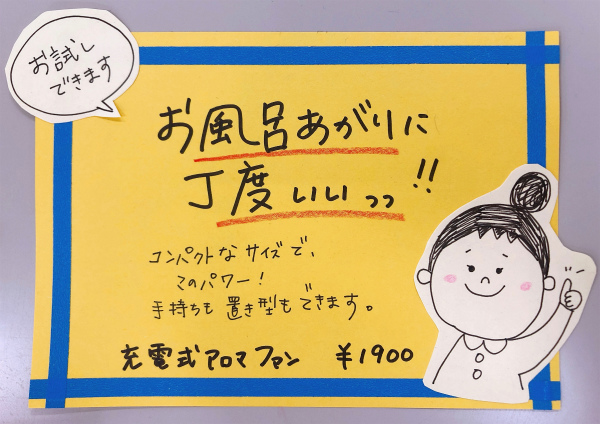 お試し
できます
お風呂あがりに
丁度いいっっ!!
コンパクトなサイズで、
このパワー!
手持ちも置き型もできます。
充電式アロマファン ¥1900